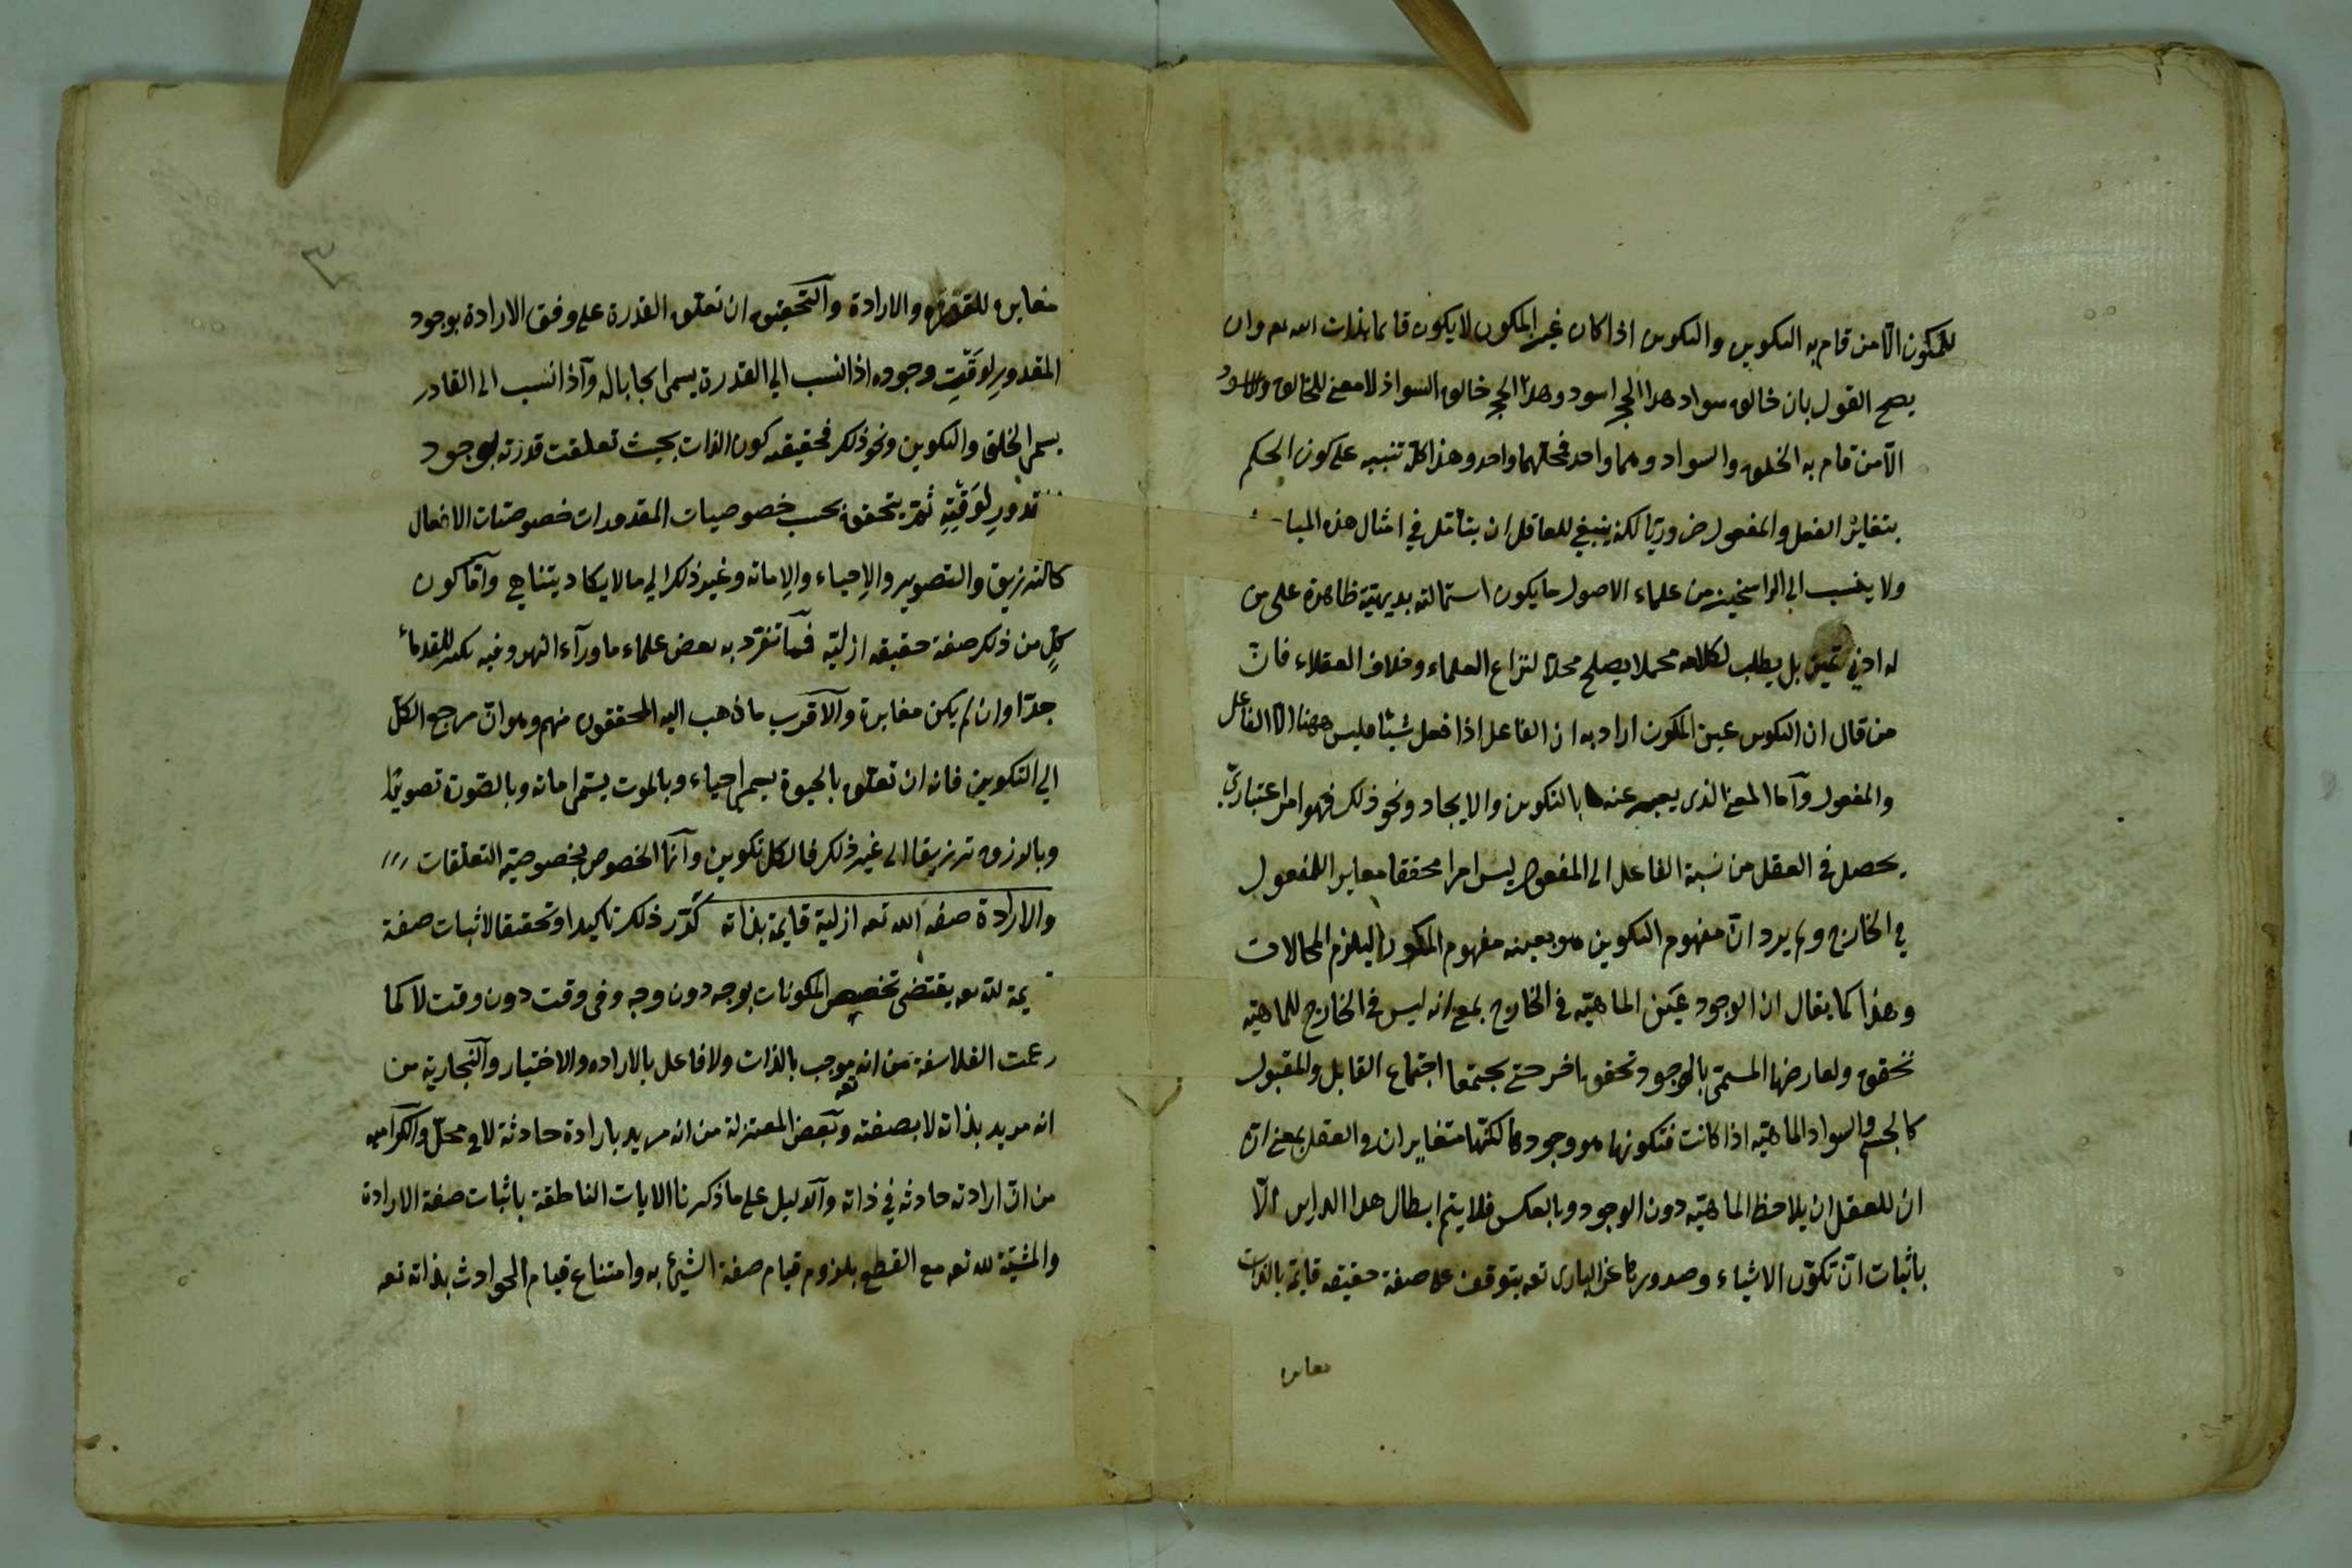 للمكون الا من قام به التكوين والتكوين اذا كان غير المكون لا يكون قائما بذات الله تع وان
يصح القول بان خالق سواد هذا الحجر اسود وهذا الحجر خالق السواد اذ لا معنى للخالق والاسود
الا من قام به الخلق والسواد وهما واحد فمحلهما واحد وهذا كله تنبيه على كون الحكم
بتغاير الفعل والمفعول ضروريا لكنه ينبغي للعاقل ان يتأمل في امثال هذه المباحث
ولا ينسب الى الراسخين من علماء الاصول ما يكون استحالته بديهية ظاهرة على من
له ادنى تميز بل يطلب لكلامه محملا يصلح محلا لنزاع العلماء وخلاف العقلاء فان
من قال ان التكوين عين المكون اراد به ان الفاعل اذا فعل شيئا فليس ههنا الا الفاعل
والمفعول وأما المعنى الذى يعبر عنه بالتكوين والايجاد ونحو ذلك فهو امر اعتباري
يحصل في العقل من نسبة الفاعل الى المفعول ليس امرا محققا مغايرا للمفعول
في الخارج ولم يرد ان مفهوم التكوين هو بعينه مفهوم المكون ليلزم المحالات
وهذا كما يقال ان الوجود عين الماهية في الخارج بمعنى انه ليس في الخارج للماهية
تحقق ولعارضها المسمى بالوجود تحقق اخر حتى يجتمعا اجتماع القابل والمقبول
كالجسم والسواد الماهية اذا كانت فتكونها هو وجودها لكنهما متغايران في العقل بمعنى انه
ان للعقل ان يلاحظ الماهية دون الوجود وبالعكس فلا يتم ابطال هذا الراى الا
باثبات ان تكون الاشياء وصدورها عن البارى تعه يتوقف على صفة حقيقه قائمة بالذات
مغايرة
٣
مغايرة للقدرة والارادة والتحقيق ان تعلق القدرة على وفق الارادة بوجود
المقدور لوقت وجوده اذا نسب الي القدرة يسمى ايجابا له وآذا نسب الى القادر
يسمى الخلق والتكوين ونحو ذلك فحقيقته كون الذات بحيث تعلقت قدرته بوجود
المقدور لوقته ثم يتحقق بحسب خصوصيات المقدورات خصوصيات الافعال
كالترزيق والتصوير والإحياء والإماتة وغير ذلك الي ما لا يكاد يتناهي وآما كون
كل من ذلك صفة حقيقه ازلية فمما تفرد به بعض علماء ما ورآء النهر وفيه تكثير للقدماء
جدا وان لم يكن مغايرة والآقرب ما ذهب اليه المحققون منهم وهو ان مرجع الكل
الي التكوين فانه ان تعلق بالحيوة يسمى احياء وبالموت يسمى اماته وبالصورة تصويرا
وبالرزق ترزيقا الى غير ذلك فالكل تكوين وآنما الخصوص بخصوصية التعلقات
والارادة صفه الله تعه ازلية قايمة بذاته كرر ذلك تاكيدا وتحقيقا لاثبات صفة
قديمة لله تعه يقتضى تخصيص المكونات بوجه دون وجه وفى وقت دون وقت لا كما
زعمت الفلاسفة من انه تعه موجب بالذات ولا فاعل بالاراده والاختيار والنجارية من
انه مريد بذاته لا بصفته وبعض المعتزلة من انه مريد بارادة حادثة لا في محل والكرامية
من ان ارادته حادثه في ذاته والدليل على ما ذكرنا الايات الناطقة باثبات صفة الارادة
والمشيئة لله تعه مع القطع بلزوم قيام صفة الشيئ به وامتناع قيام الحوادث بذاته تعه